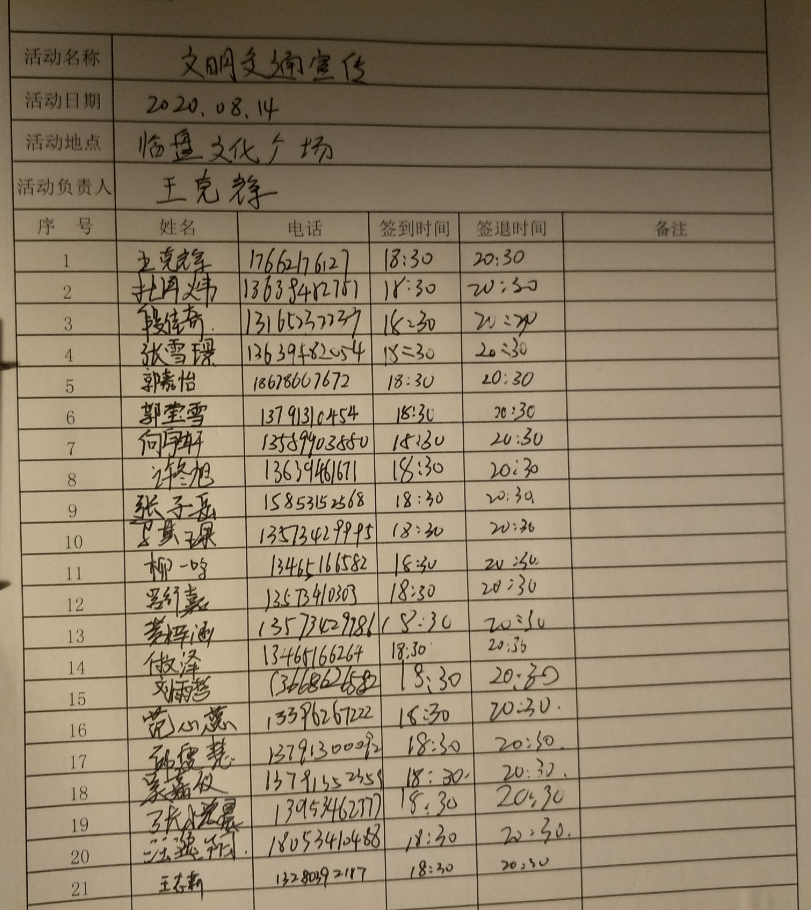 活动名称 文明交通宣传
活动日期 2020.08.14
活动地点 临盘文化广场
活动负责人 王克
序 号 姓名 电话 签到时间 签退时间 备注
1 王克 17662176127 18:30 20:30
2 13639482757 18:30 20:30
3 段佳奇 18:30
4 张雪璟 13639482054 18:30 20:30
5 郭嘉怡 18678607672 18:30 20:30
6 郭莹雪 13791310454 18:30 20:30
7 向宇轩 13589903880 18:30 20:30
8 许冬旭 13639461671 18:30 20:30
9 张子岳 15853152568 18:30 20:30
10 13573429995 18:30 20:30
11 柳一鸣 13465166582 18:30 20:30
12 13573410303 18:30 20:30
13 13573429786 18:30 20:30
14 13465166264 18:30 20:30
15 13668626582 18:30 20:30
16 范心蕊 13396267222 18:30 20:30.
17 13791300092 18:30 20:30.
18 18:30. 20:30.
19 13953462777 18:30 20:30
20 18053410488 18:30 20:30.
21 王志新 13280392187 18:30 20:30